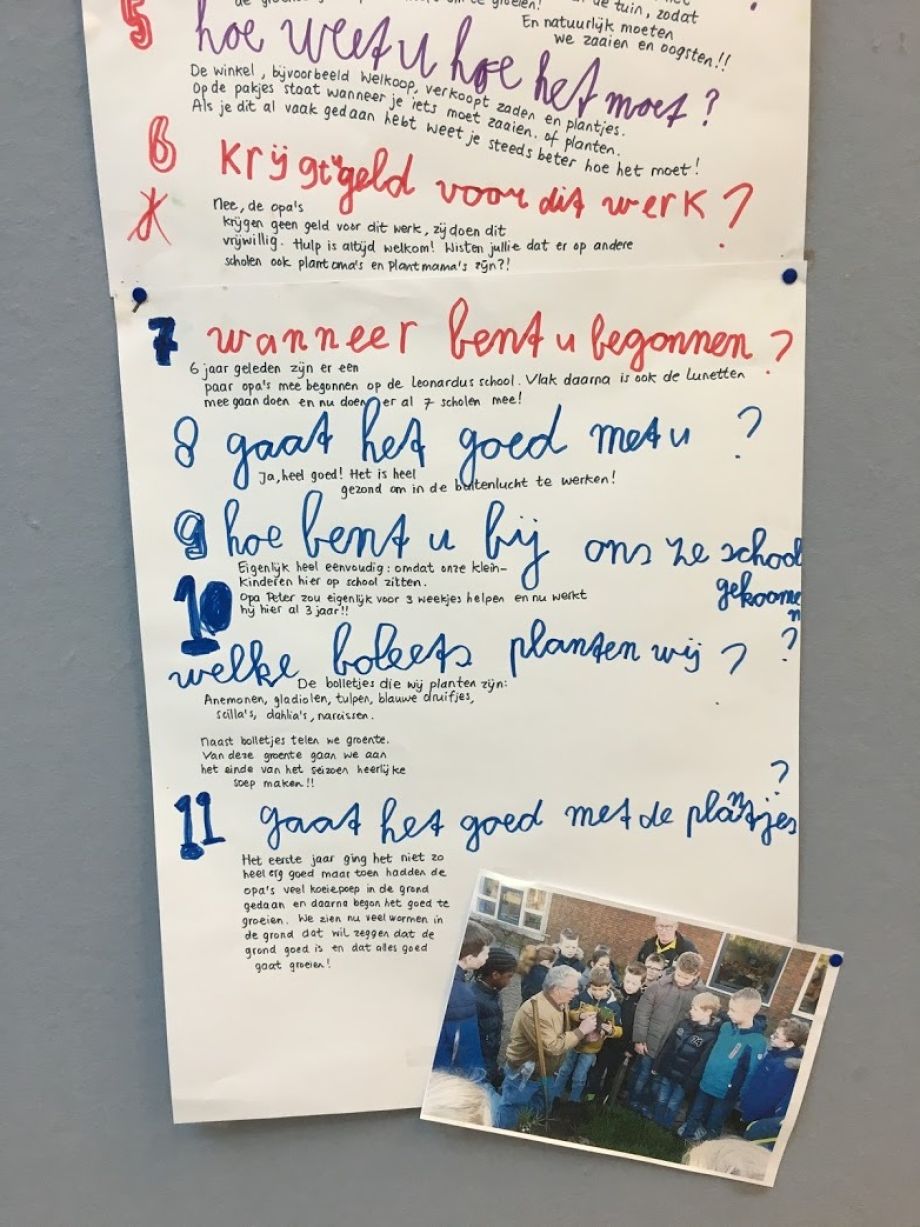 de tuin, zodat
En natuurlijk moeten
we zaaien en oogsten!!
5
hoe weet u hoe het moet?
De winkel, bijvoorbeeld Welkoop, verkoopt zaden en plantjes.
Op de pakjes staat wanneer je iets moet zaaien. of planten.
Als je dit al vaak gedaan hebt weet je steeds beter hoe het moet!
6 krijgt u geld voor dit werk?
Nee, de opa's
krijgen geen geld voor dit werk, zij doen dit
vrijwillig. Hulp is altijd welkom! Wisten jullie dat er op andere
scholen ook plantoma's en plantmama's zijn?!
7 wanneer bent u begonnen?
6 jaar geleden zijn er een
paar opa's mee begonnen op de leonardus school. Vlak daarna is ook de Lunetten
mee gaan doen en nu doen er al 7 scholen mee!
8 gaat het goed met u ?
Ja, heel goed! Het is heel
gezond om in de buitenlucht te werken!
9 hoe bent u bij ons ze school
gekoomen
?
Eigenlijk heel eenvoudig: omdat onze klein-
kinderen hier op school zitten.
Opa Peter zou eigenlijk voor 3 weekjes helpen en nu werkt
hij hier al 3 jaar!!
10
welke boleets planten wij ?
De bolletjes die wij planten zijn:
Anemonen, gladiolen, tulpen, blauwe druifjes,
scilla's, dahlia's, narcissen.
Naast bolletjes telen we groente.
Van deze groente gaan we aan
het einde van het seizoen heerlijke
soep maken!!
11 gaat het goed met de plantjes
?
Het eerste jaar ging het niet zo
heel erg goed maar toen hadden de
opa's veel koeiepoep in de grond
gedaan en daarna begon het goed te
groeien. We zien nu veel wormen in
de grond dat wil zeggen dat de
grond goed is en dat alles goed
gaat groeien!